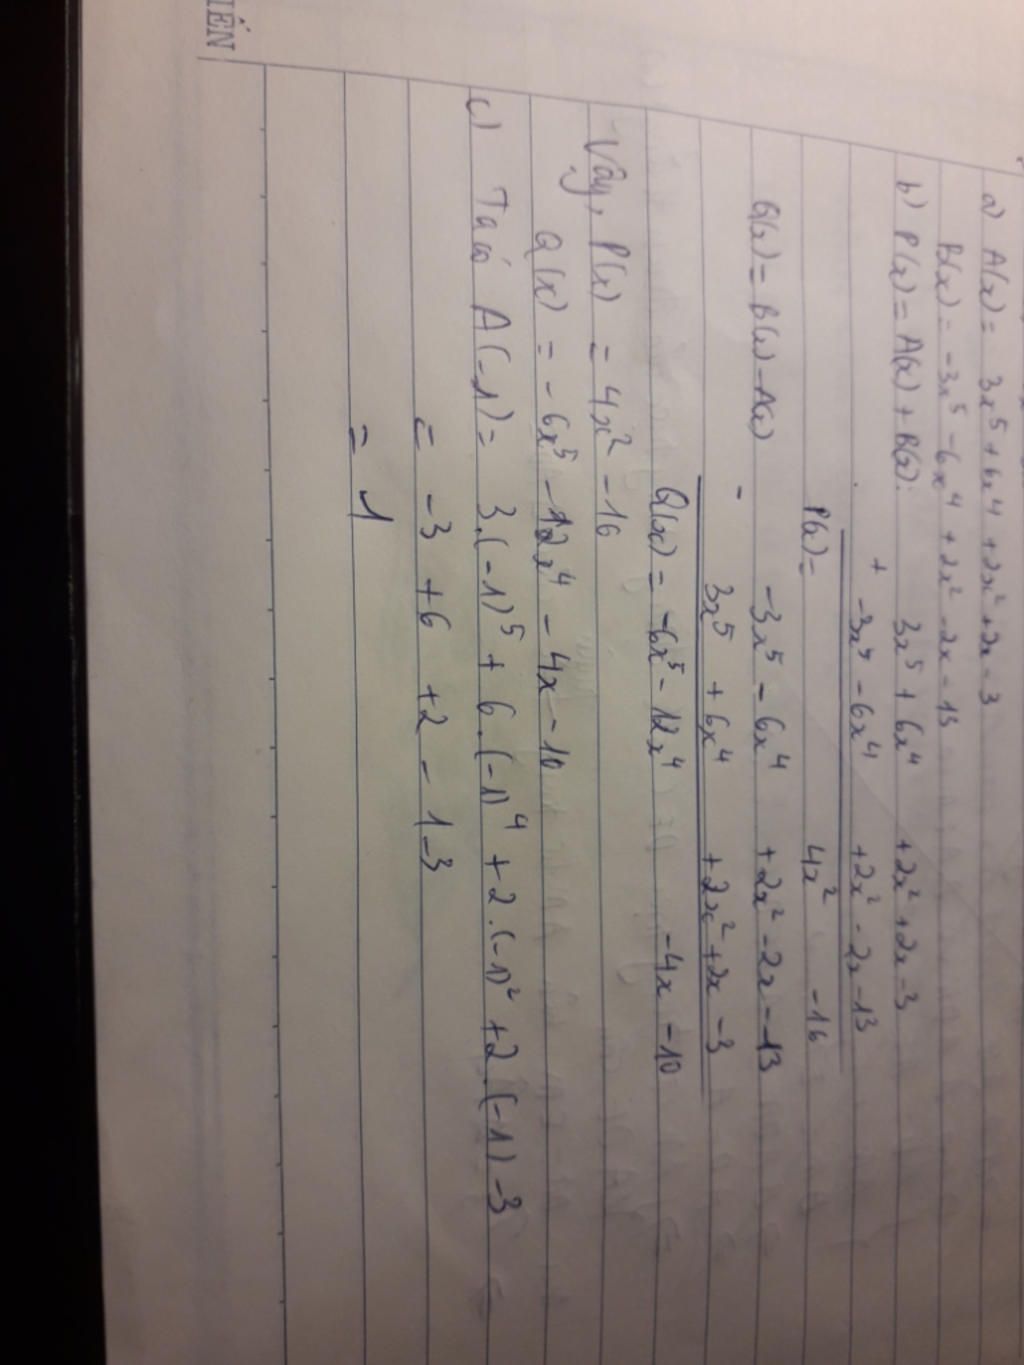 a) A(x) = 3x⁵ + 6x⁴ + 2x² + 2x - 3
B(x) = -3x⁵ - 6x⁴ + 2x² - 2x - 13
b) P(x) = A(x) + B(x): 3x⁵ + 6x⁴ + 2x² + 2x - 3
+ -3x⁵ - 6x⁴ + 2x² - 2x - 13
P(x) = 4x² - 16
Q(x) = B(x) - A(x) -3x⁵ - 6x⁴ + 2x² - 2x - 13
- 3x⁵ + 6x⁴ + 2x² + 2x - 3
Q(x) = -6x⁵ - 12x⁴ - 4x - 10
Vậy, P(x) = 4x² - 16
Q(x) = -6x⁵ - 12x⁴ - 4x - 10
c) Ta có A(-1) = 3.(-1)⁵ + 6.(-1)⁴ + 2.(-1)² + 2.(-1) - 3
= -3 + 6 + 2 - 1 - 3
= 1
IẾN